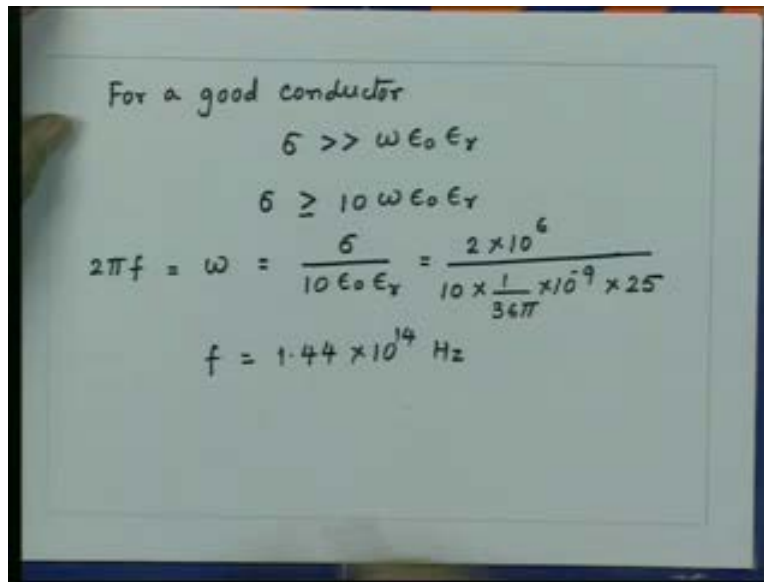 For a good conductor
σ >> ω ϵ₀ ϵᵣ
σ ≥ 10 ω ϵ₀ ϵᵣ
2πf = ω = σ / 10 ϵ₀ ϵᵣ = 2 × 10⁶ / 10 × 1/36π × 10⁻⁹ × 25
f = 1.44 × 10¹⁴ Hz